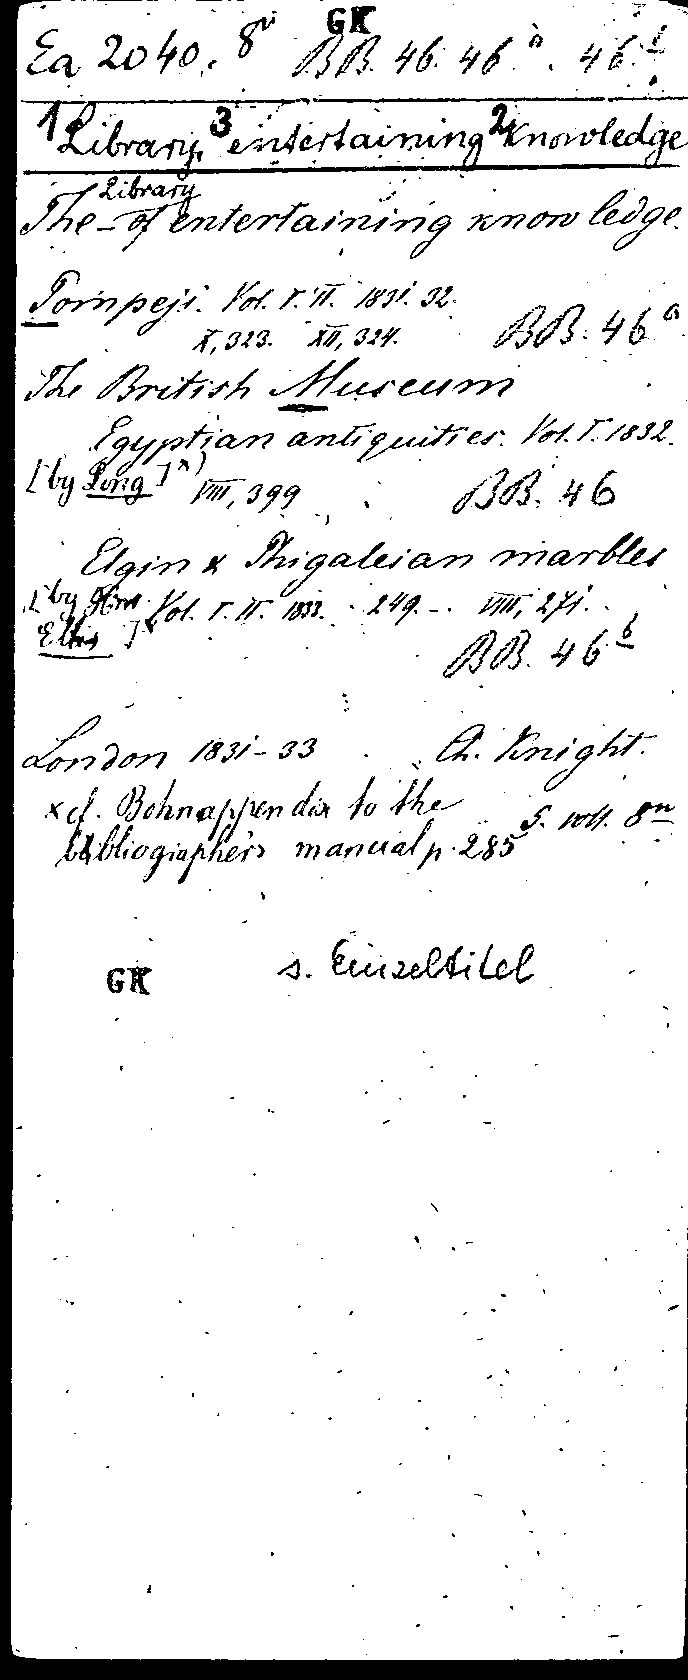 GK
Ea 2040. 8° BB. 46. 46a. 46b
1 Library, 3 entertaining 2 Knowledge
Library
The - of entertaining knowledge.
Pompeji. Vol. I. II. 1831. 32.
X, 323. XII, 324. BB. 46a
The British Museum
Egyptian antiquities. Vol. I. 1832.
[by Long] x) VIII, 399 BB. 46
Elgin & Phigaleian marbles
[by Hnr. Vol. I. II. 1833. 249. - VIII, 271.
Ellis] x BB. 46b
London 1831-33 Ch. Knight.
x cf. Bohn appendix to the
bibliographer's manual p. 285 5. voll. 8°
GK s. Einzeltitel